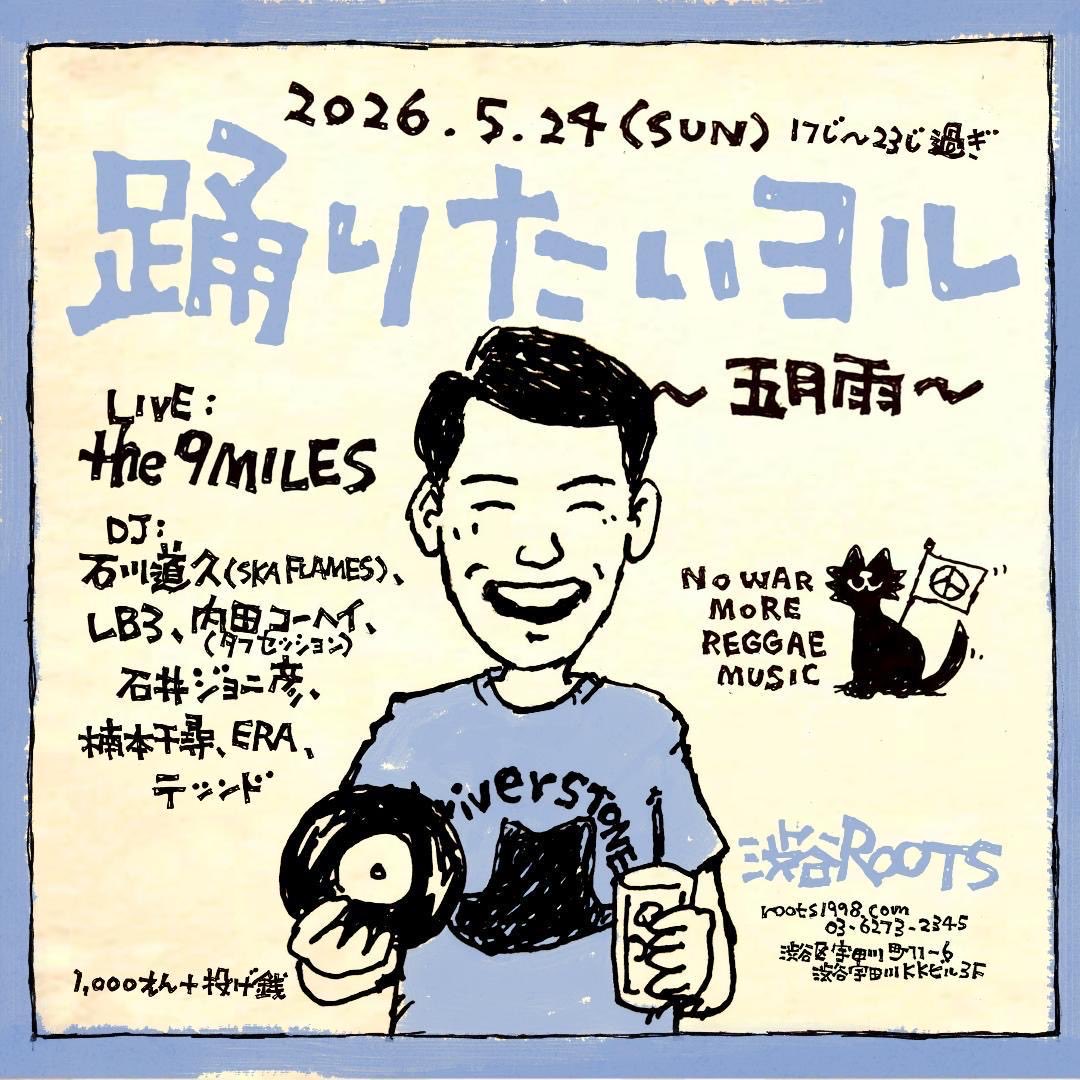 2026.5.24(SUN) 17じ～23じ過ぎ
踊りたいヨル
～五月雨～
LIVE:
the 9MILES
DJ:
石川道久(SKA FLAMES)、
LB3、内田コーヘイ、
(タフセッション)
石井ジョニ彦、
楠本千尋、ERA、
テツンド
NO WAR
MORE
REGGAE
MUSIC
riverSTONE
渋谷ROOTS
roots1998.com
03-6273-2345
渋谷区宇田川町11-6
渋谷宇田川KKビル3F
1,000えん+投げ銭